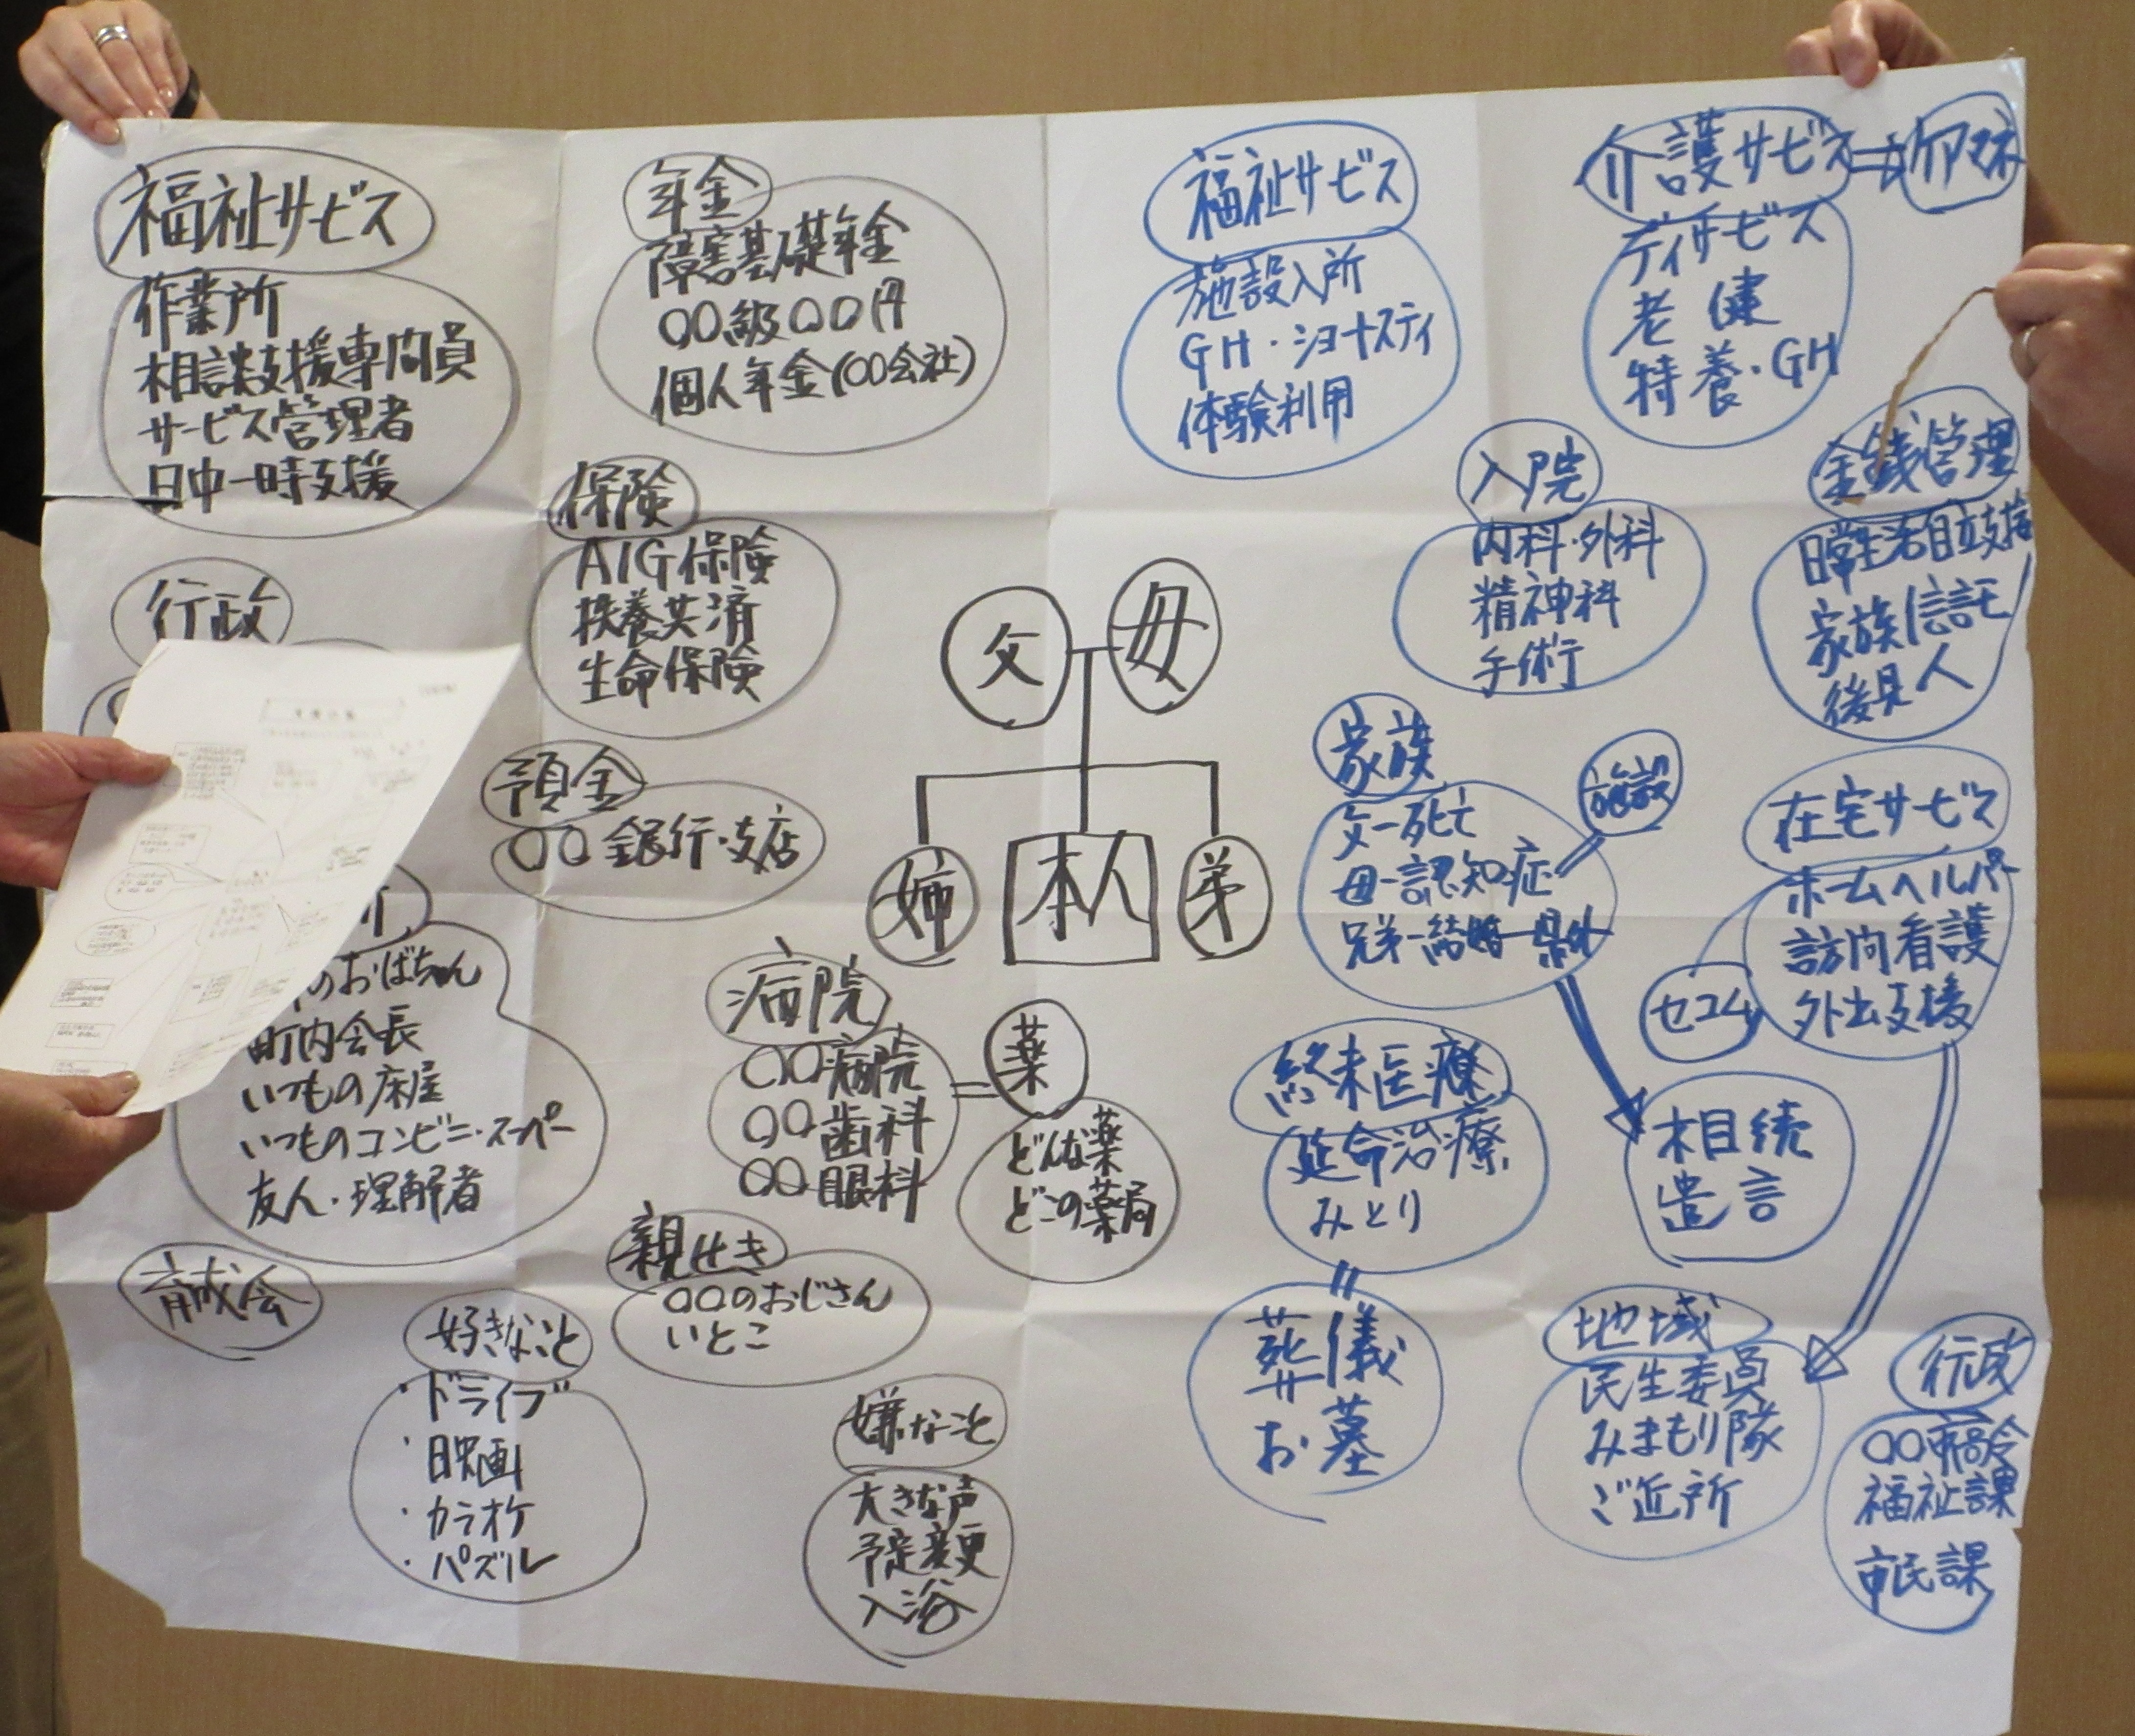 福祉サービス
作業所
相談支援専門員
サービス管理者
日中一時支援
年金
障害基礎年金
〇〇級〇〇円
個人年金(〇〇会社)
保険
AIG保険
扶養共済
生命保険
行政
預金
〇〇銀行・支店
父
母
姉
本人
弟
のおばちゃん
町内会長
いつもの床屋
いつものコンビニ・スーパー
友人・理解者
病院
〇〇病院
〇〇歯科
〇〇眼科
薬
どんな薬
どこの薬局
育成会
親せき
〇〇のおじさん
いとこ
好きなこと
・ドライブ
・映画
・カラオケ
・パズル
嫌なこと
大きな声
予定変更
入浴
福祉サービス
施設入所
GH・ショートスティ
体験利用
介護サービス
ケアマネ
デイサービス
老健
特養・GH
入院
内科・外科
精神科
手術
金銭管理
日常生活自立支援
家族信託
後見人
家族
父ー死亡
母ー認知症
兄弟ー結婚ー県外
施設
在宅サービス
ホームヘルパー
訪問看護
外出支援
セコム
終末医療
延命治療
みとり
相続
遺言
葬儀
お墓
地域
民生委員
みまもり隊
ご近所
行政
福祉課
市民課